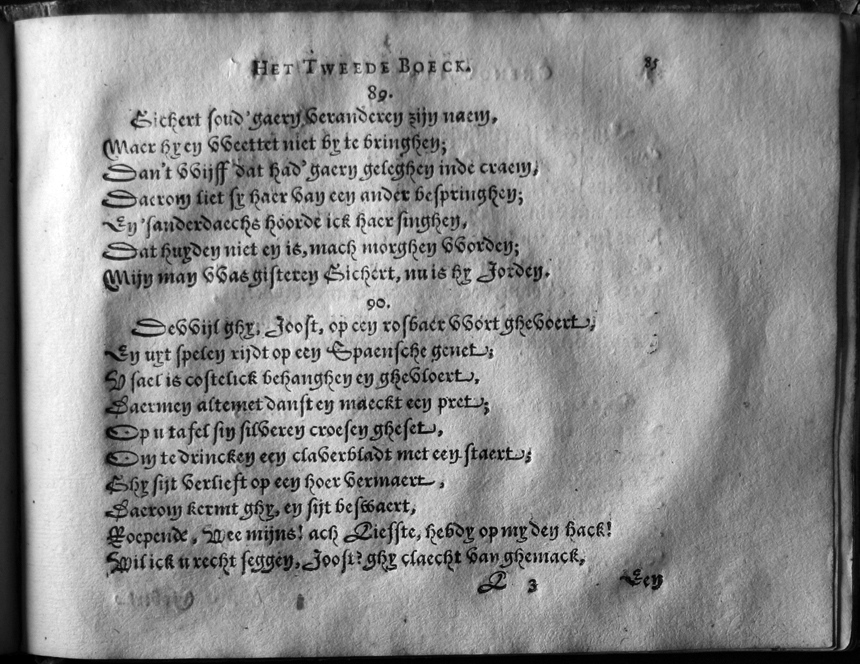 HET TWEEDE BOECK. 85
89.
Sichert soud' gaern veranderen zijn naem,
Maer hy en vveettet niet by te bringhen;
Dan't vvijff dat had' gaern geleghen inde craem,
Daerom liet sy haer van een ander bespringhen;
En 'sanderdaechs hoorde ick haer singhen,
Dat huyden niet en is, mach morghen vvorden;
Mijn man vvas gisteren Sichert, nu is hy Jorden.
90.
Devvijl ghy, Joost, op een rosbaer vvort ghevoert,
En uyt spelen rijdt op een Spaensche genet;
V sael is costelick behanghen en ghevloert,
Daermen altemet danst en maeckt een pret;
Op u tafel sin silveren croesen gheset,
Om te drincken een claverbladt met een staert;
Ghy sijt verlieft op een hoer vermaert,
Daerom kermt ghy, en sijt beswaert,
Roepende, Wee mijns! ach Liefste, hebdy op my den hack!
Wil ick u recht seggen, Joost? ghy claecht van ghemack,
L 3 Een